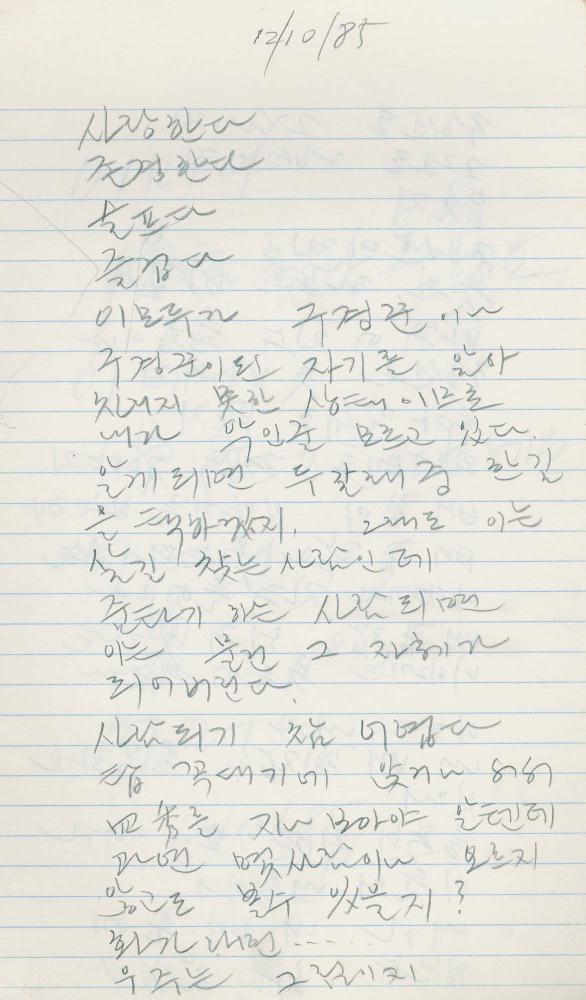 12/10/85
사랑한다
존경한다
슬프다
즐겁다
이 모두가 구경꾼이나
구경꾼이란 자기를 알아
차리지 못한 상태이므로
내가 인줄 모르고 있다.
알게되면 두갈래중 한길
을 택하겠지. 그래도 이는
살길 찾는 사람인데
줄타기 하는 사람되면
이는 물건 그 자체가
되어버린다.
사람되기 참 어렵다
탑 꼭대기에 앉거나 88
고개를 지나 보아야 알텐데
과연 몇사람이나 오르지
않고도 볼수 있을지?
화가 나면.....
우주는 그림에지